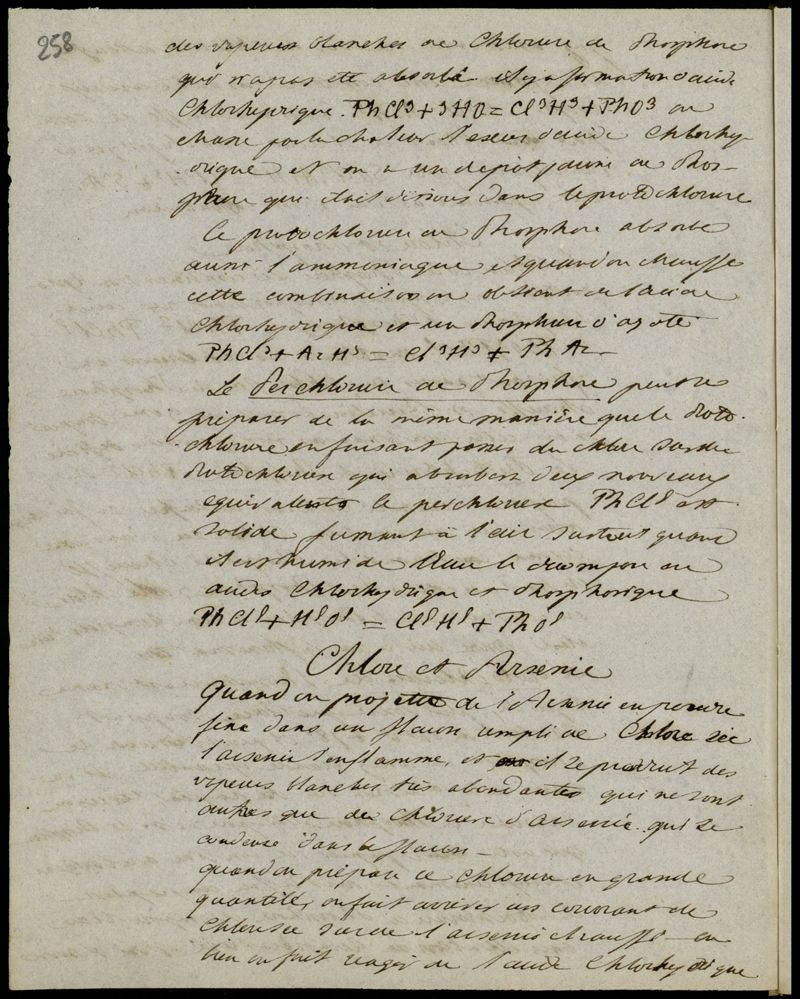 258
des vapeurs blanches de Chlorure de Phosphore
qui n'a pas été absorbé. il y a formation d'acide
Chlorhydrique. PhCl³+3HO=Cl³H³+PhO³ on
chasse par la chaleur l'exces d'acide Chlorhy-
drique et on a un depot jaune de Phos-
phore qui était dissous dans le protochlorure
Ce protochlorure de Phosphore absorbe
aussi l'ammoniaque et quand on chauffe
cette combinaison on obtient de l'acide
Chlorhydrique et un Phosphure d'azote
PhCl³+AzH³ = Cl³H³ + PhAz
Le Perchlorure de Phosphore peut se
préparer de la même manière que le Proto-
chlorure en faisant passer du chlore sur du
Protochlorure qui absorbera deux nouveaux
equivalents le perchlorure PhCl⁵ est
solide fumant à l'air surtout quand
il est humide l'Eau le decompose en
acides Chlorhydrique et Phosphorique
PhCl⁵+H⁵O⁵ = Cl⁵H⁵+PhO⁵
Chlore et Arsenic
Quand on projette de l'Arsenic en poudre
fine dans un flacon rempli de Chlore sec
l'arsenic s'enflamme, et il se produit des
vapeurs blanches très abondantes qui ne sont
autres que du Chlorure d'arsenic qui se
condense dans le flacon
quand on prépare ce chlorure en grande
quantité, on fait arriver un courant de
Chlore sec sur de l'arsenic chauffé ou
bien on fait réagir de l'acide Chlorhydrique